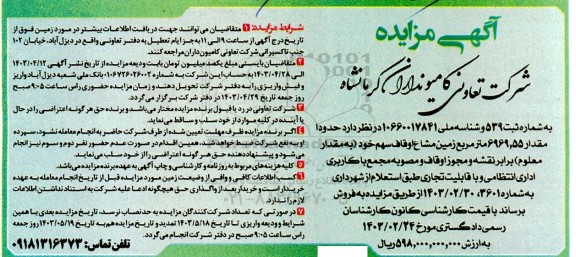 آگهی مزایده
شرکت تعاونی کامیونداران کرمانشاه
به شماره ثبت ۵۳۹ و شناسه ملی ۱۰۶۶۰۰۱۷۸۴۱ در نظر دارد حدودا
مقدار ۶۹۶۹,۵۵ متر مربع زمین مشاع اوقاف سهم خود (به مقدار
معلوم) برابر نقشه و مجوز اوقاف و مصوبه مجمع با کاربری
اداری انتظامی و با قابلیت تجاری طبق استعلام از شهرداری
به شماره ۳۶۰۱، ۱۴۰۳/۰۲/۳۰ از طریق مزایده به فروش
برساند با قیمت کارشناسی کانون کارشناسان
رسمی دادگستری مورخ ۱۴۰۳/۰۲/۲۴
به ارزش ۵۹۸,۰۰۰,۰۰۰,۰۰۰ ریال
شرایط مزایده: ۱ متقاضیان می توانند جهت دریافت اطلاعات بیشتر در مورد زمین فوق از
تاریخ درج آگهی از ساعت ۹ الی ۱۱ به جز ایام تعطیل به دفتر تعاونی واقع در دیزل آباد، خیابان ۱۰۲
جنب تاکسیرانی شرکت تعاونی کامیون داران مراجعه کنند.
۲ متقاضیان بایستی مبلغ یکصد میلیون تومان بابت ودیعه مزایده از تاریخ نشر آگهی ۱۴۰۳/۰۴/۱۲
الی ۱۴۰۳/۰۴/۲۸ به حساب این شرکت به شماره ۰۱۰۶۷۲۶۰۲۶۰۰۲ بانک ملی شعبه دیزل آباد واریز
و فیش واریزی را به دفتر شرکت تحویل دهند و زمان مزایده حضوری راس ساعت ۹:۰۵ صبح
روز جمعه تاریخ ۱۴۰۳/۰۴/۲۹ در دفتر شرکت برگزار می گردد.
۳ شرکت تعاونی در رد یا قبول برنده مزایده مختار می باشد، و برنده حق هر گونه اعتراضی را در حال
یا آینده در کلیه موارد از خود سلب و ساقط می نماید.
۴ اگر برنده مزایده ظرف مهلت تعیین شده از طرف شرکت حاضر به انجام معامله نشود، سپرده
او به نفع شرکت ضبط خواهد شد. همین اقدام در صورت عدم حضور نفر دوم و سوم نیز انجام
می شود و پیشنهاددهنده حق هر گونه اعتراضی را از خود سلب می نمایند.
۵ کلیه هزینه های مربوط به روزنامه و کارشناسی و چاپ آگهی به عهده برنده مزایده می باشد.
۶ کسب اطلاعات کافی و وافی از وضعیت زمین مورد مزایده قبل از تاریخ انجام معامله به عهده
خریدار است و خریدار بعد از واگذاری حق هیچگونه ادعا علیه شرکت به استناد نداشتن اطلاعات
لازم را ندارد.
۷ در صورتی که تعداد شرکت کنندگان مزایده به حد نصاب نرسد، تاریخ مزایده بعدی با همین
شرایط و ودیعه واریزی تا تاریخ ۱۴۰۳/۵/۱۸ تمدید و تاریخ مزایده هم به تاریخ ۱۴۰۳/۰۵/۱۹ روز جمعه
راس ساعت ۹:۰۵ صبح در دفتر شرکت انجام می گردد.
تلفن تماس: ۰۹۱۸۱۳۱۶۳۷۳